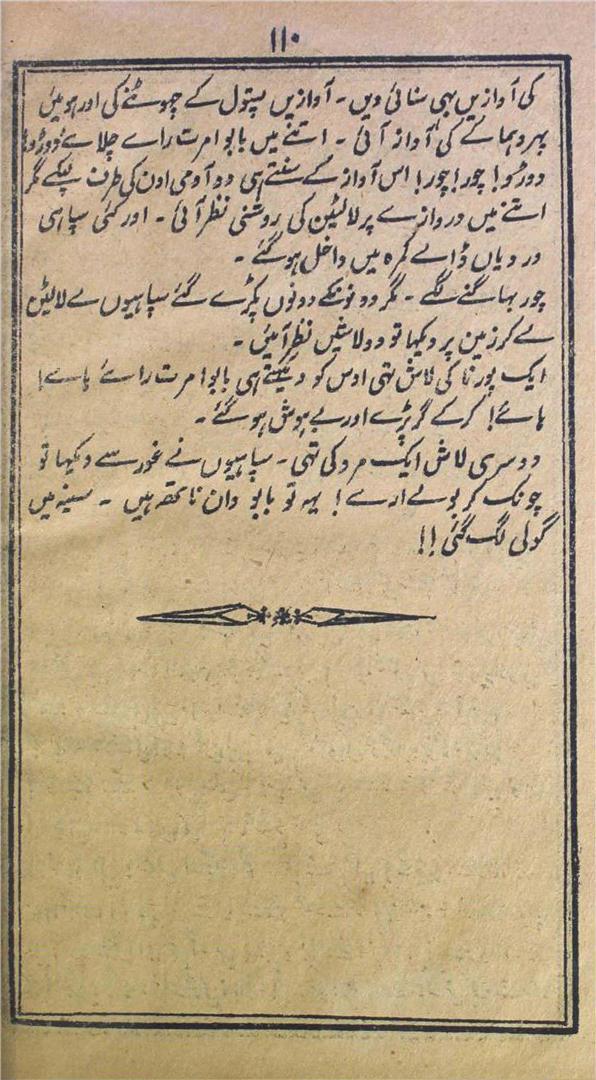 ۱۱۰
کی آوازیں بہی سنائی دیں - آوازیں پستول کے چہوٹنے کی اور ہوئیں
پہر دہماکے کی آواز آئی - اتنے میں بابو امرت رائے چلائے دوڑو!
دوڑو! چور! چور! اس آواز کے سنتے ہی دو آدمی اون کی طرف لپکے مگر
اتنے میں دروازے پر لالٹین کی روشنی نظر آئی - اور کئی سپاہی
وردیاں ڈالے کمرہ میں داخل ہو گئے -
چور بہاگنے لگے - مگر دونوں کے دونوں پکڑے گئے سپاہیوں نے لالٹین
لے کر زمین پر دیکہا تو دو لاشیں نظر آئیں -
ایک پورنا کی لاش تہی اوس کو دیکہتے ہی بابو امرت رائے ہائے!
ہائے! کر کے گر پڑے اور بے ہوش ہو گئے -
دوسری لاش ایک مرد کی تہی - سپاہیوں نے غور سے دیکہا تو
چونک کر بولے ارے! یہ تو بابو دان ناتھ ہیں - سینہ میں
گولی لگ گئی!!